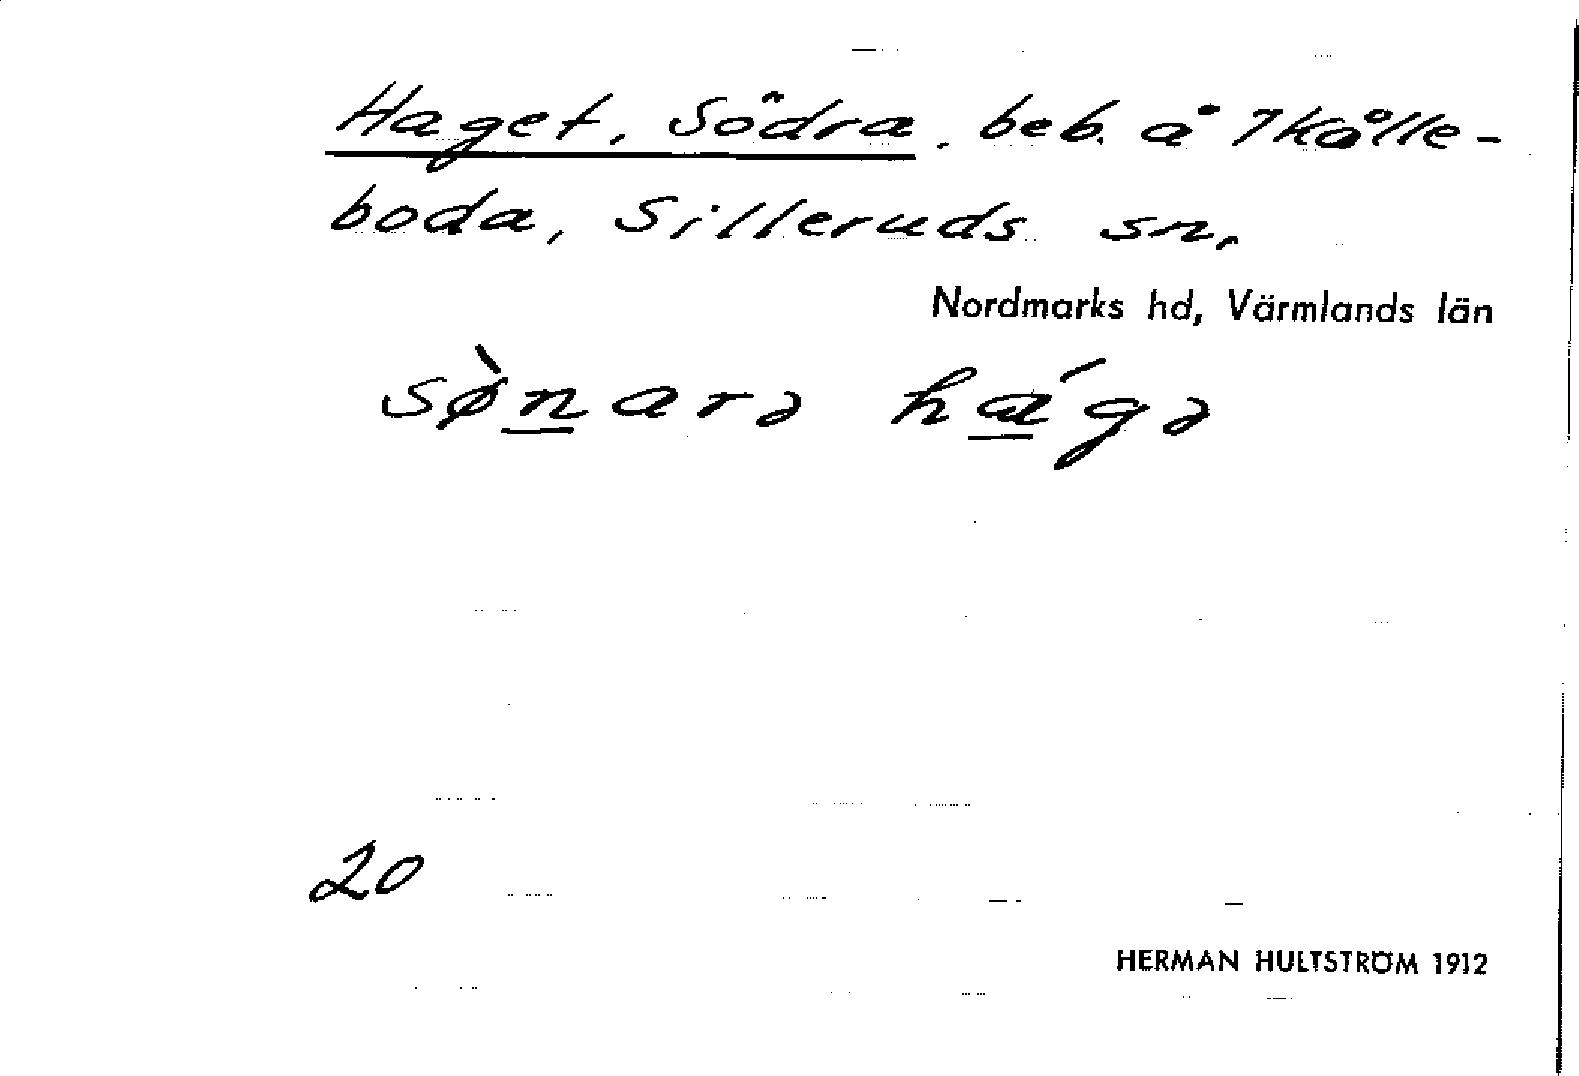 Haget, Södra. beb. å 7 Kålle-
boda, Silleruds sn,
Nordmarks hd, Värmlands län
sø̀n̲arə há̲gə
20
HERMAN HULTSTRÖM 1912